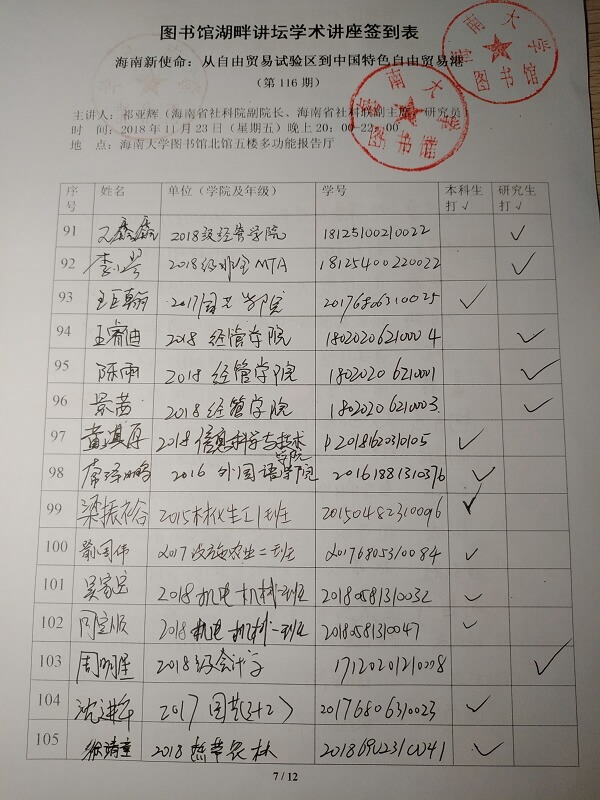 图书馆湖畔讲坛学术讲座签到表
海南新使命：从自由贸易试验区到中国特色自由贸易港
（第 116 期）
主讲人：祁亚辉（海南省社科院副院长、海南省社科联副主席、研究员）
时 间：2018 年 11 月 23 日（星期五）晚上 20：00-22：00
地 点：海南大学图书馆北馆五楼多功能报告厅
海南大学
图书馆
海南大学
图书馆
序号 姓名 单位（学院及年级） 学号 本科生打√ 研究生打√
91 鑫鑫 2018级经管学院 18125100210022 √
92 李 2018级 MTA 18125400220022 √
93 王巨翰 2017园艺学院 20176806310025 √
94 王睿迪 2018 经管学院 18020206210004 √
95 陈雨 2018 经管学院 18020206210001 √
96 景茜 2018 经管学院 18020206210003 √
97 黄淇厚 2018信息科学与技术学院 20181620310105 √
98 2016 外国语学院 20161881310376 √
99 梁振裕 2015材化生工1班 20150482310096 √
100 2017设施农业二班 20176805310084 √
101 吴家宝 2018机电机械一班 20180581310032 √
102 周宝顺 2018机电机械一班 20180581310047 √
103 周明星 2018级会计学 17120201210008 √
104 沈进军 2017 园艺(3+2) 20176806310023 √
105 徐靖童 2018 热带农林 20186902310041 √
7 / 12